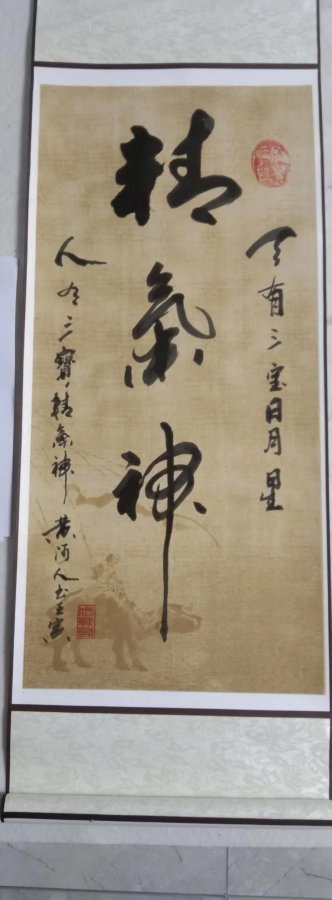 天有三宝日月星
精氣神
人有三寶精氣神 黄河人书